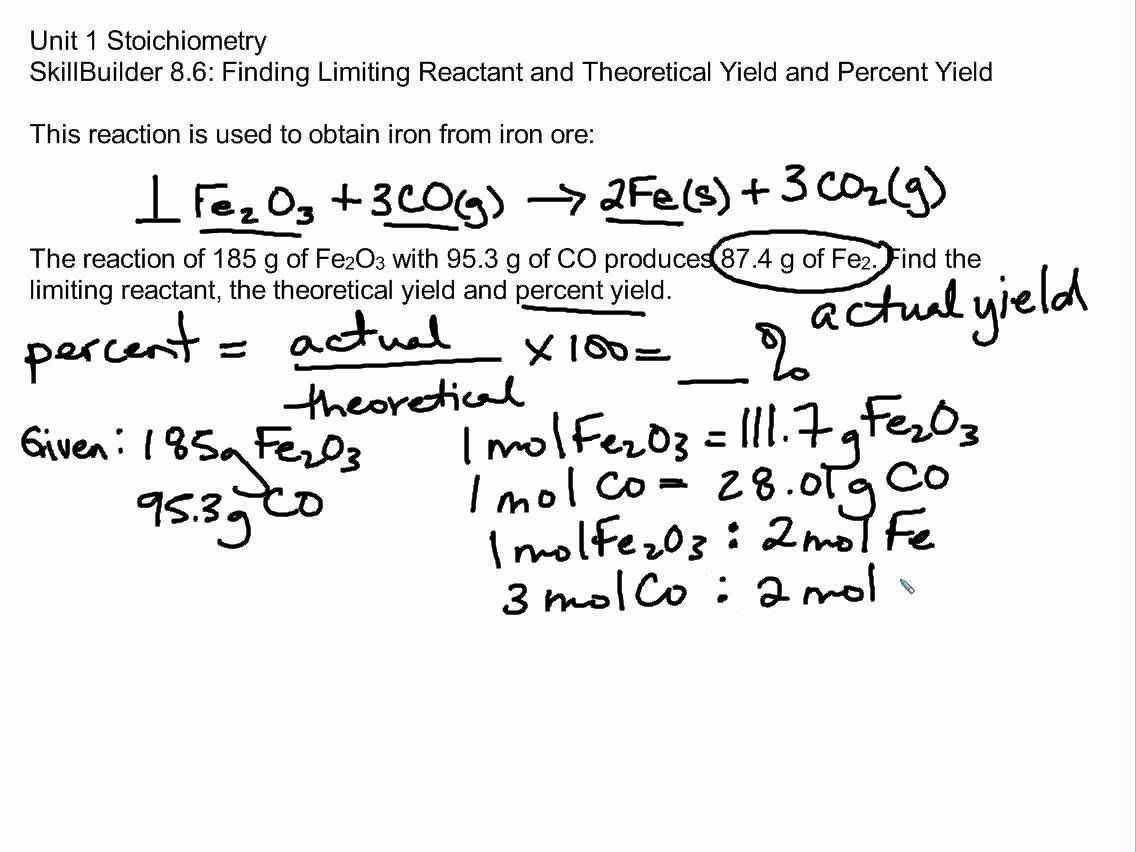 Unit 1 Stoichiometry
SkillBuilder 8.6: Finding Limiting Reactant and Theoretical Yield and Percent Yield
This reaction is used to obtain iron from iron ore:
1 Fe₂O₃ + 3CO(g) → 2Fe(s) + 3CO₂(g)
The reaction of 185 g of Fe₂O₃ with 95.3 g of CO produces 87.4 g of Fe₂. Find the
limiting reactant, the theoretical yield and percent yield.
actual yield
percent = actual / theoretical × 100 = __ %
Given: 185g Fe₂O₃
95.3g CO
1 mol Fe₂O₃ = 111.7g Fe₂O₃
1 mol CO = 28.01g CO
1 mol Fe₂O₃ : 2 mol Fe
3 mol CO : 2 mol